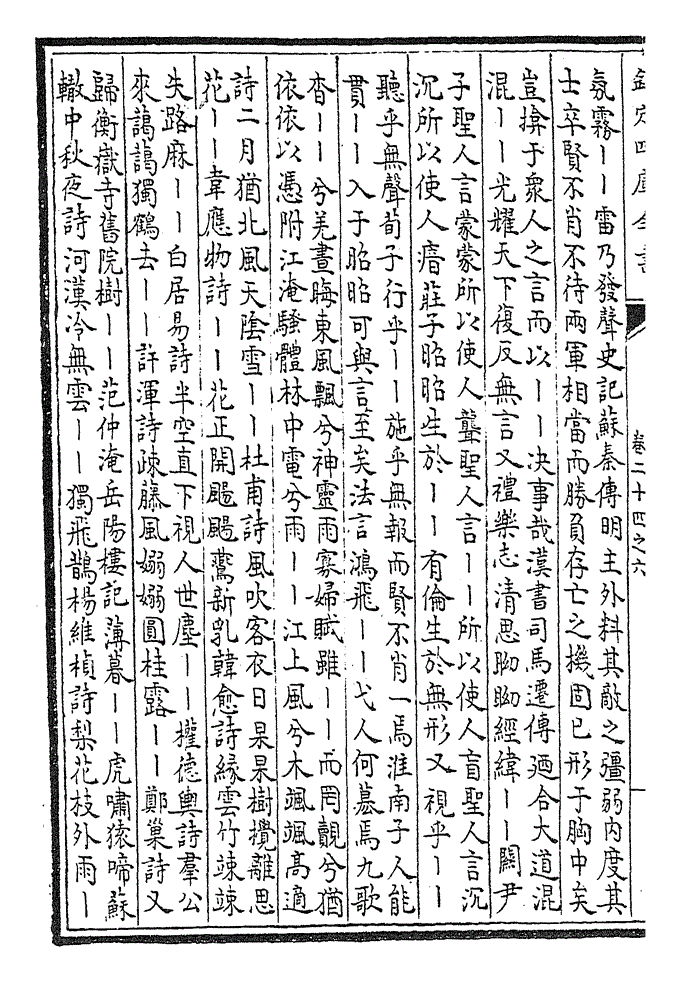 欽定四庫全書
卷二十四之六
氛霧丨丨雷乃發聲史記蘇秦傳明主外料其敵之彊弱内度其
士卒賢不肖不待兩軍相當而勝負存亡之機固已形于胸中矣
豈揜于衆人之言而以丨丨决事哉漢書司馬遷傳廼合大道混
混丨丨光耀天下復反無言又禮樂志清思眑眑經緯丨丨關尹
子聖人言蒙蒙所以使人聾聖人言丨丨所以使人盲聖人言沉
沉所以使人瘖莊子昭昭生於丨丨有倫生於無形又視乎丨丨
聽乎無聲荀子行乎丨丨施乎無報而賢不肖一焉淮南子人能
貫丨丨入于昭昭可與言至矣法言鴻飛丨丨弋人何慕焉九歌
杳丨丨兮羌晝晦東風飄兮神靈雨寡婦賦雖丨丨而罔覿兮猶
依依以憑附江淹騷體林中電兮雨丨丨江上風兮木颯颯高適
詩二月猶北風天陰雪丨丨杜甫詩風吹客衣日杲杲樹攪離思
花丨丨韋應物詩丨丨花正開颺颺鷰新乳韓愈詩緣雲竹竦竦
失路麻丨丨白居易詩半空直下視人世塵丨丨權德輿詩羣公
來藹藹獨鶴去丨丨許渾詩疎藤風嫋嫋圓桂露丨丨鄭巢詩又
歸衡嶽寺舊院樹丨丨范仲淹岳陽樓記薄暮丨丨虎嘯猿啼蘇
轍中秋夜詩河漢冷無雲丨丨獨飛鵲楊維楨詩梨花枝外雨丨